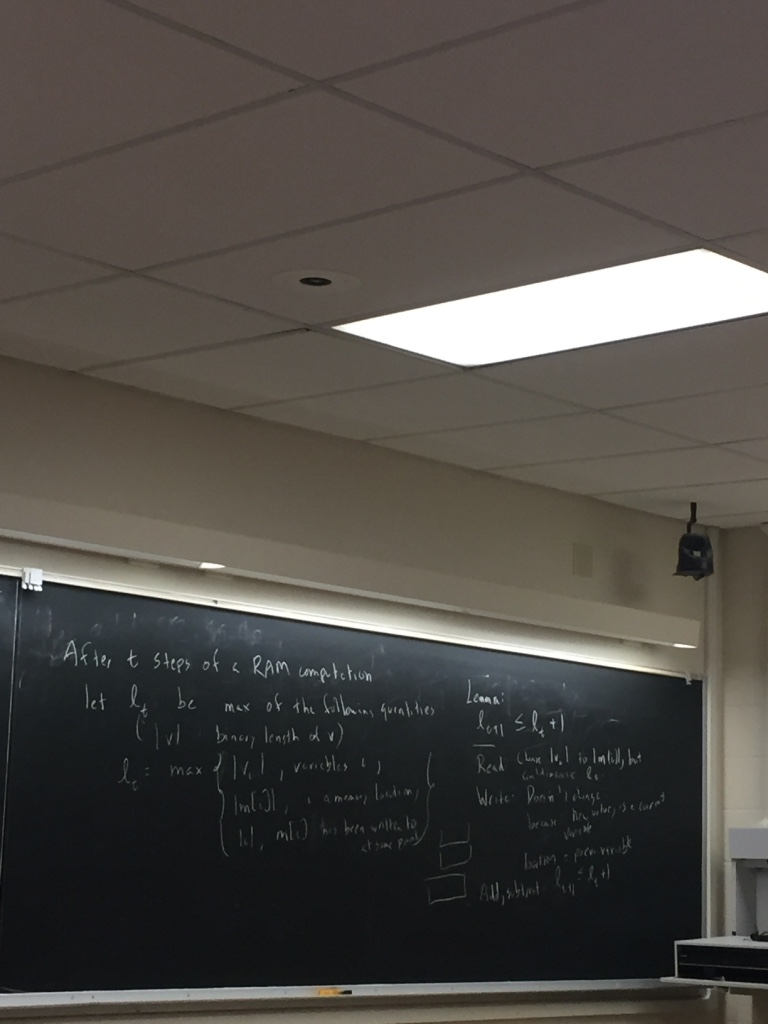 After t steps of a RAM computation
let ℓₜ be max of the following quantities
(|v| binary length of v)
ℓₜ = max { |vᵢ|, variables i,
|m[i]|, i a memory location,
|i|, m[i] has been written to
at some point }
Lemma:
ℓₜ₊₁ ≤ ℓₜ + 1
Read: to but
Write: Doesn't change
because new value is a current
variable
location = variable
Add, subtract: ℓₜ₊₁ ≤ ℓₜ + 1